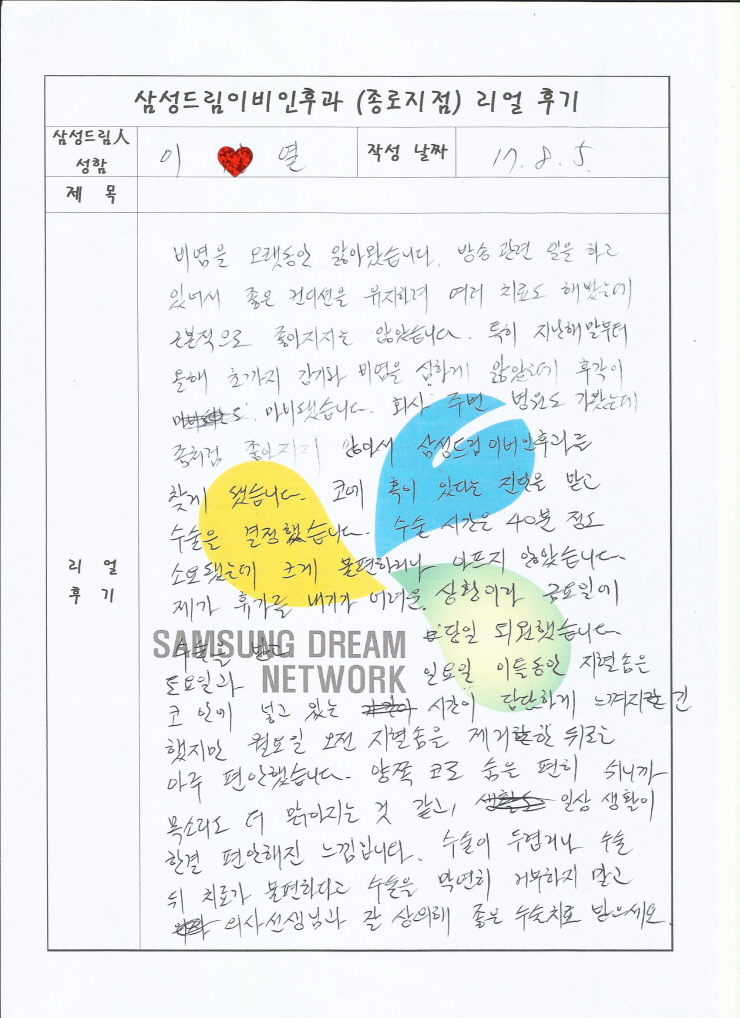 삼성드림이비인후과 (종로지점) 리얼 후기
삼성드림人
성함
이 ♥ 열
작성 날짜
17. 8. 5.
제 목
리 얼
후 기
비염을 오랫동안 앓아왔습니다. 방송 관련 일을 하고
있어서 좋은 컨디션을 유지하려 여러 치료도 해봤는데
근본적으로 좋아지지는 않았습니다. 특히 지난해말부터
올해 초까지 감기와 비염을 심하게 앓았는데 후각이
마비됐습니다. 회사 주변 병원도 가봤는데
좀처럼 좋아지지 않아서 삼성드림이비인후과를
찾게 됐습니다. 코에 혹이 있다는 진단을 받고
수술을 결정했습니다. 수술 시간은 40분 정도
소요됐는데 크게 불편하거나 아프지 않았습니다.
제가 휴가를 내기가 어려운 상황이라 금요일에
수술을 받고 당일 퇴원했습니다.
토요일과 일요일 이틀동안 지혈솜은
코 안에 넣고 있는 시간이 답답하게 느껴지긴
했지만 월요일 오전 지혈솜을 제거한 뒤로는
아주 편안했습니다. 양쪽 코로 숨을 편히 쉬니까
목소리도 더 맑아지는 것 같고, 일상 생활이
한결 편안해진 느낌입니다. 수술이 두렵거나 수술
뒤 치료가 불편하다고 수술을 막연히 거부하지 말고
의사선생님과 잘 상의해 좋은 수술치료 받으세요.
SAMSUNG DREAM
NETWORK